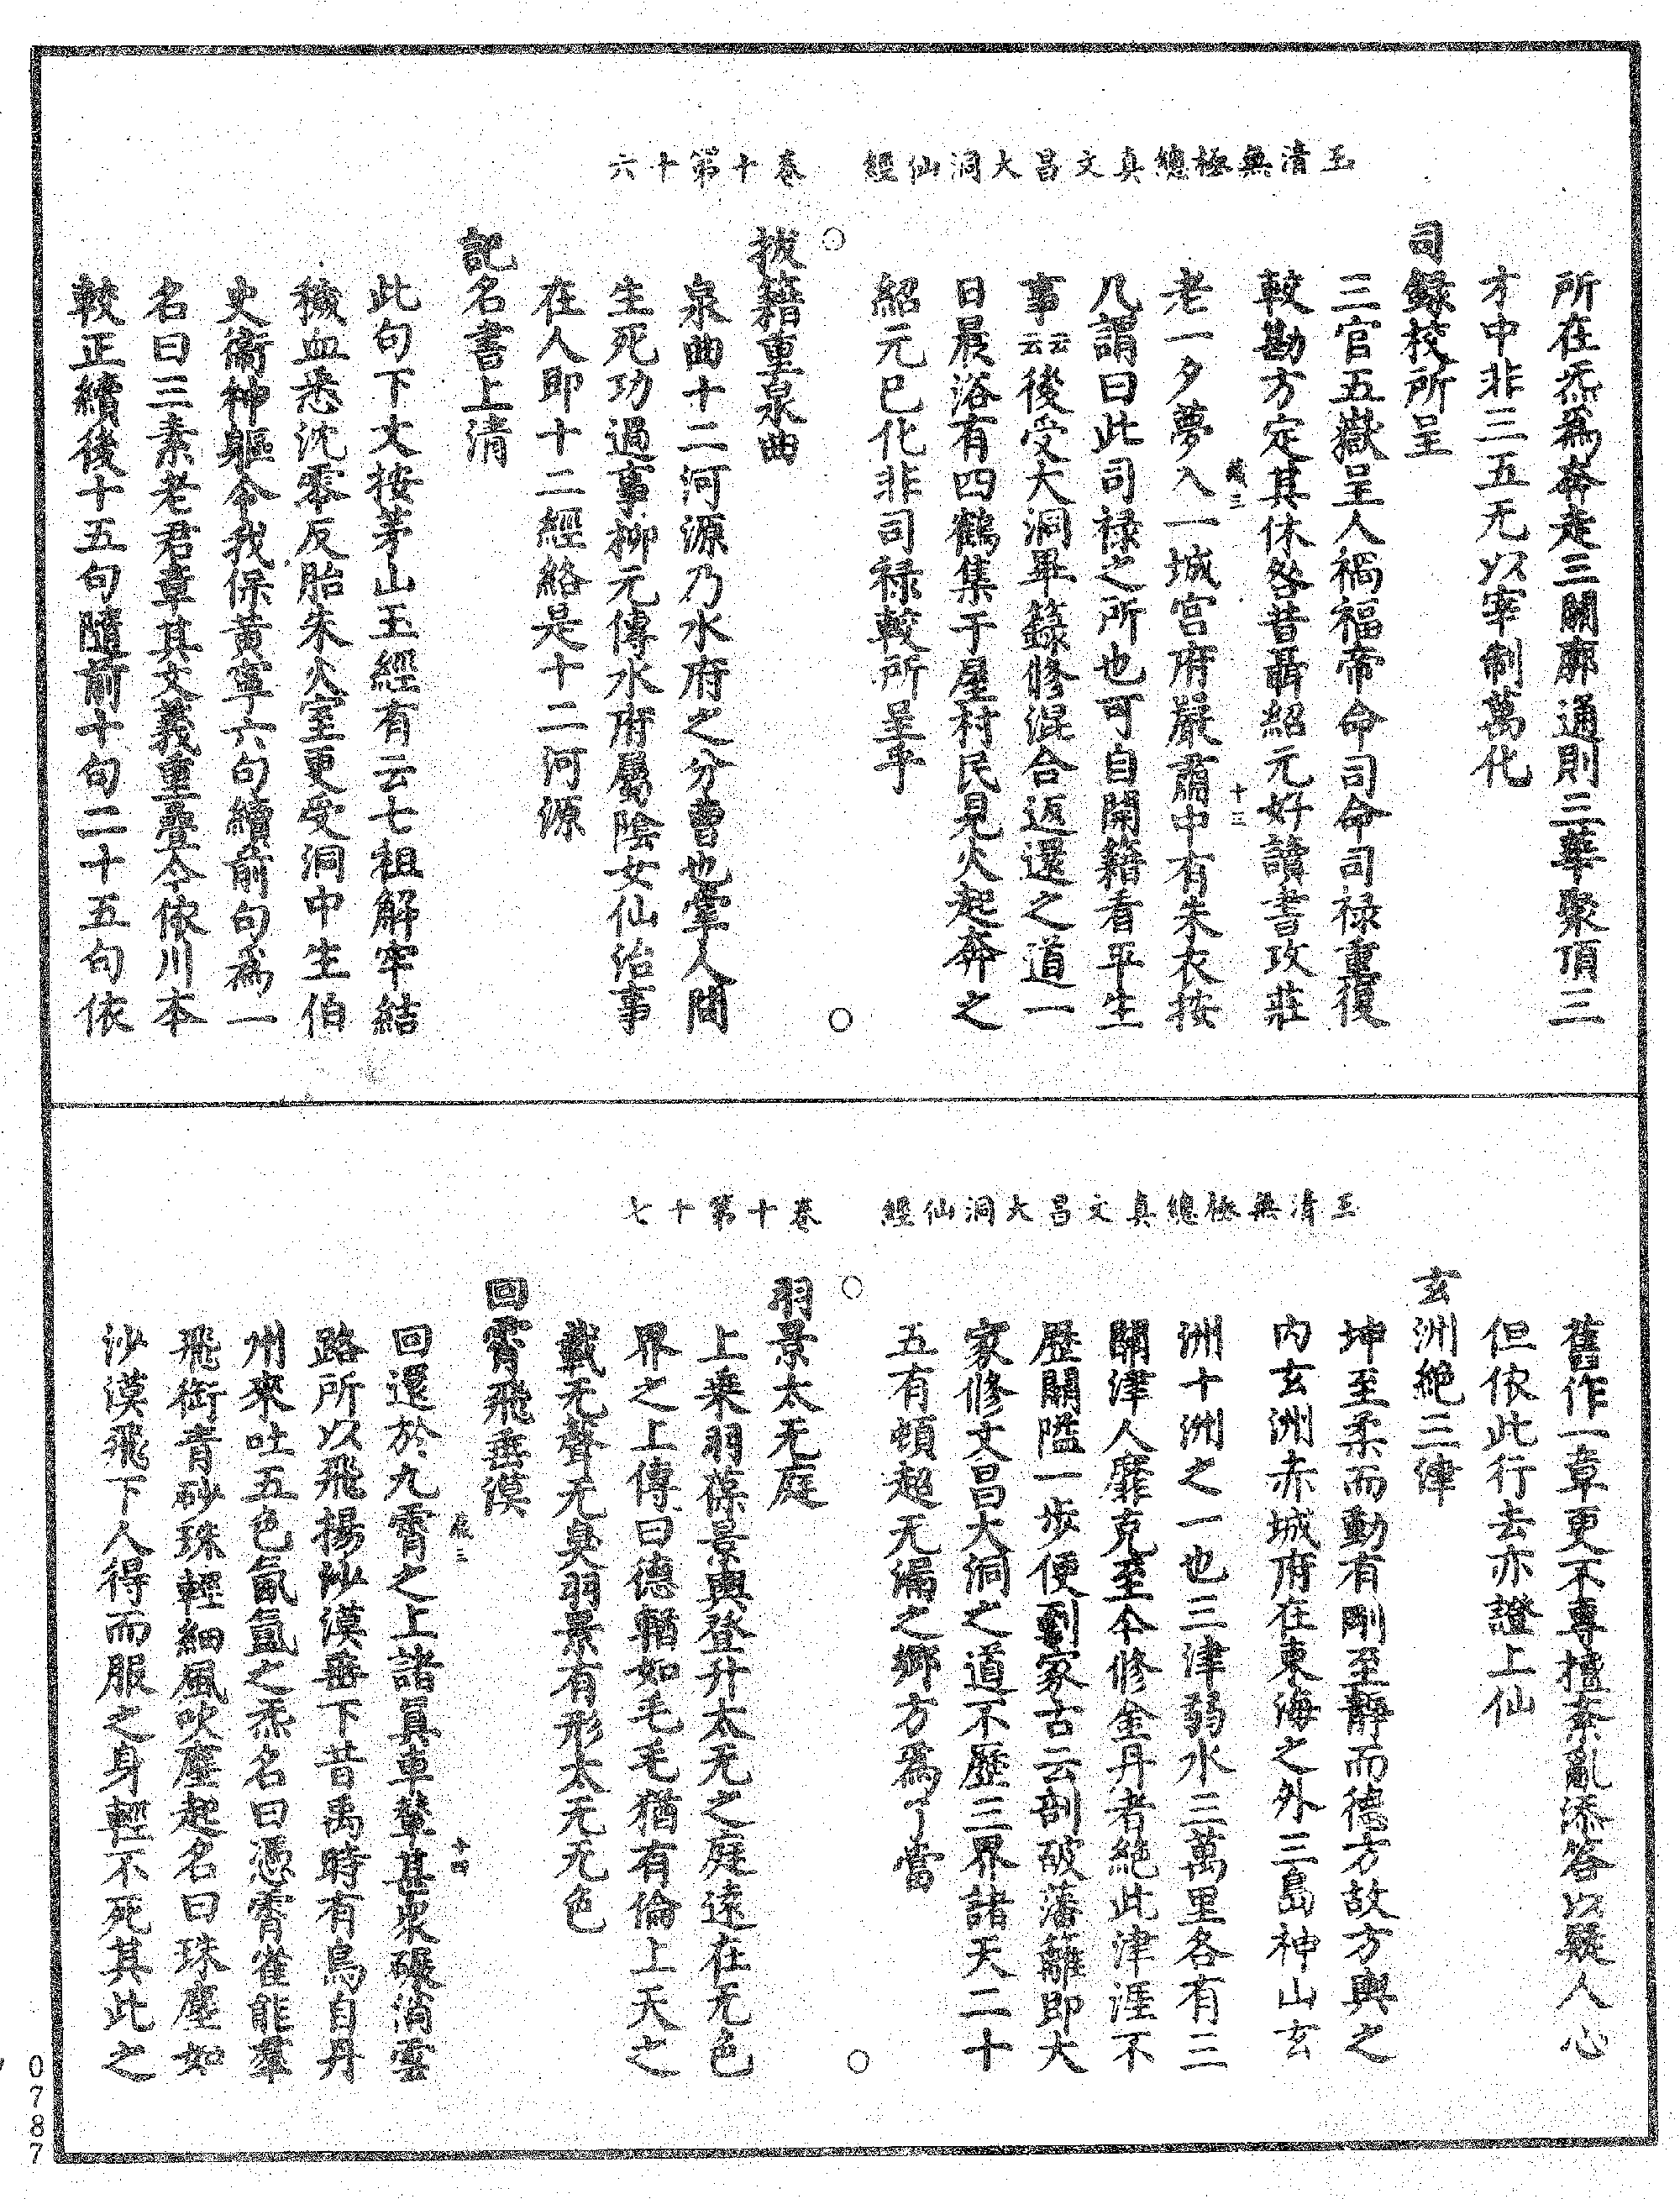 玉清無極總真文昌大洞仙經　卷十第十六
所在炁爲奔走三關廓通則三華聚頂三
才中非三五无以宰制萬化
司錄校所呈
三官五嶽呈人禍福帝命司命司祿重復
較勘方定其休咎昔聶紹元好讀書攻莊
老一夕夢入一城宮府嚴肅中有朱衣按
几謂曰此司祿之所也可自開籍看平生
事云云後受大洞畢籙修混合返還之道一
日晨浴有四鶴集于屋村民見火起奔之
紹元已化非司祿較所呈乎
拔籍重泉曲
泉曲十二河源乃水府之分曹也掌人間
生死功過事柳元傳水府屬陰女仙治事
在人即十二經絡是十二河源
記名書上清
此句下大按茅山玉經有云七祖解牢結
穢血悉沈零反胎朱火室更受洞中生伯
史衞神軀令我保黃寧六句續前句爲一
名曰三素老君章其文義重疊今依川本
較正續後十五句隨前十句二十五句依
玉清無極總真文昌大洞仙經　卷十第十七
舊作一章更不專擅紊亂添答以疑人心
但依此行去亦證上仙
玄洲絕三津
坤至柔而動有剛至靜而德方故方輿之
内玄洲赤城府在東海之外三島神山玄
洲十洲之一也三津弱水三萬里各有三
關津人靡克至今修金丹者絕此津涯不
歷關隘一步便到家古云剖破藩籬即大
家修文昌大洞之道不歷三界諸天二十
五有頓超无漏之鄉方爲了當
羽景太无庭
上乘羽葆景輿登升太无之庭遠在无色
界之上傳曰德輶如毛毛猶有倫上天之
載无聲无臭羽景有形太无无色
回霄飛垂漠
回還於九霄之上諸眞車輦其衆碾淌雲
路所以飛揚沙漠垂下昔禹時有鳥自丹
州來吐五色氤氳之炁名曰憑霄雀能羣
飛銜青砂珠輕細風吹塵起名曰珠塵如
沙漠飛下人得而服之身輕不死其此之
0787